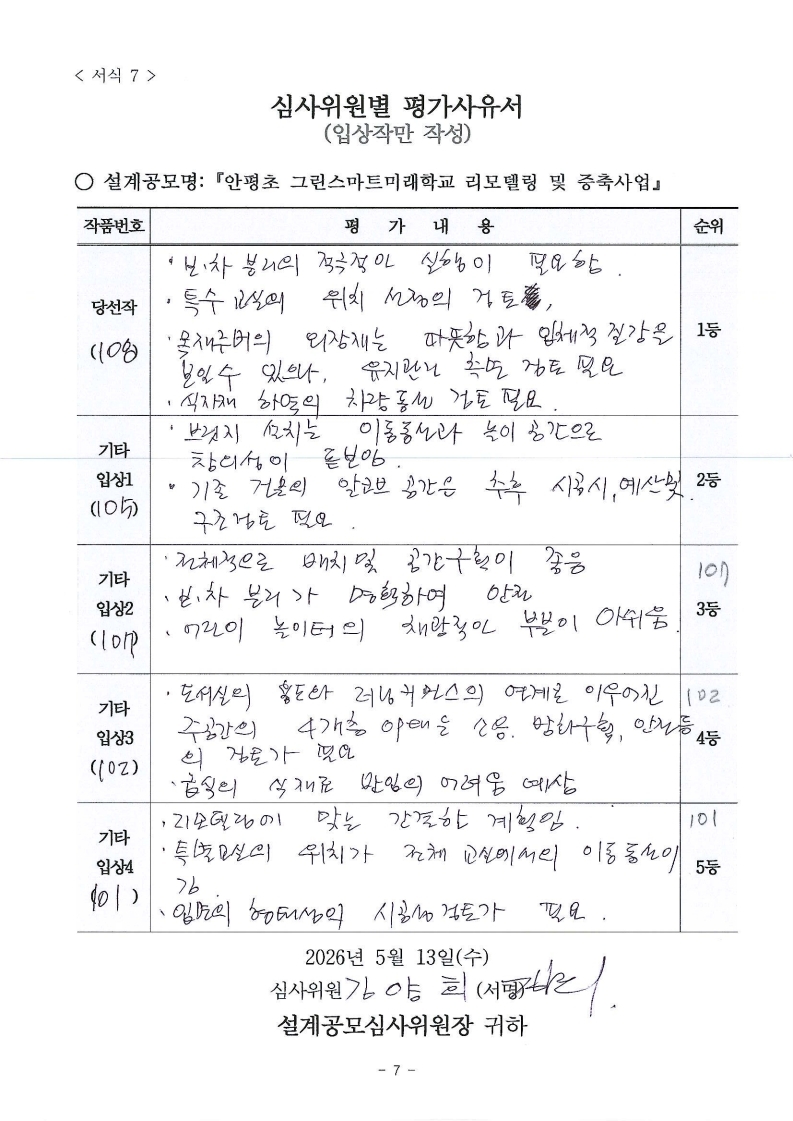 < 서식 7 >
심사위원별 평가사유서
(입상작만 작성)
○ 설계공모명: 『안평초 그린스마트미래학교 리모델링 및 증축사업』
작품번호 평 가 내 용 순위
당선작 (108) 1등
· 보.차 분리의 적극적인 실행이 필요함.
· 특수 교실의 위치 선정의 검토
· 목재루버의 외장재는 따뜻함과 입체적 질감을
보일 수 있으나, 유지관리 측면 검토 필요
· 식자재 하역의 차량동선 검토 필요.
기타 입상1 (105) 2등
· 브릿지 설치는 이동동선과 놀이 공간으로
창의성이 돋보임.
· 기존 건물의 알코브 공간은 추후 시공시, 예산및
구조검토 필요.
기타 입상2 (107) 107 3등
· 전체적으로 배치 및 공간구획이 좋음
· 보.차 분리가 명확하여 안전
· 어린이 놀이터의 채광적인 부분이 아쉬움.
기타 입상3 (102) 102 4등
· 도서실의 홀도와 러닝커먼스의 연계로 이루어진
주공간의 4개층 아트는 소음. 방화구획, 안전등
의 검토가 필요
· 급식의 식재료 반입의 어려움 예상
기타 입상4 (101) 101 5등
· 리모델링에 맞는 간결한 계획임.
· 특별교실의 위치가 전체 교실에서의 이동동선이
김.
· 입면의 형태상의 시공성 검토가 필요.
2026년 5월 13일(수)
심사위원 김 양 희 (서명)
설계공모심사위원장 귀하
- 7 -